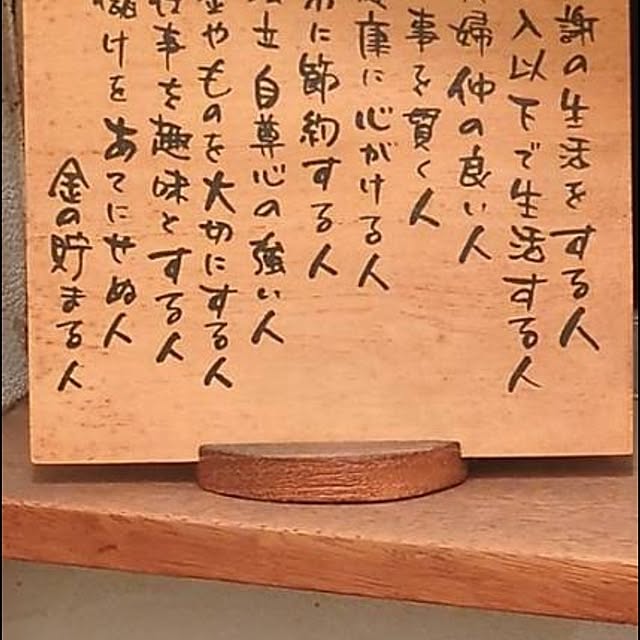 謝の生活をする人
入以下で生活する人
婦仲の良い人
事を貫く人
康に心がける人
に節約する人
立自尊心の強い人
やものを大切にする人
事を趣味とする人
儲けをあてにせぬ人
金の貯まる人